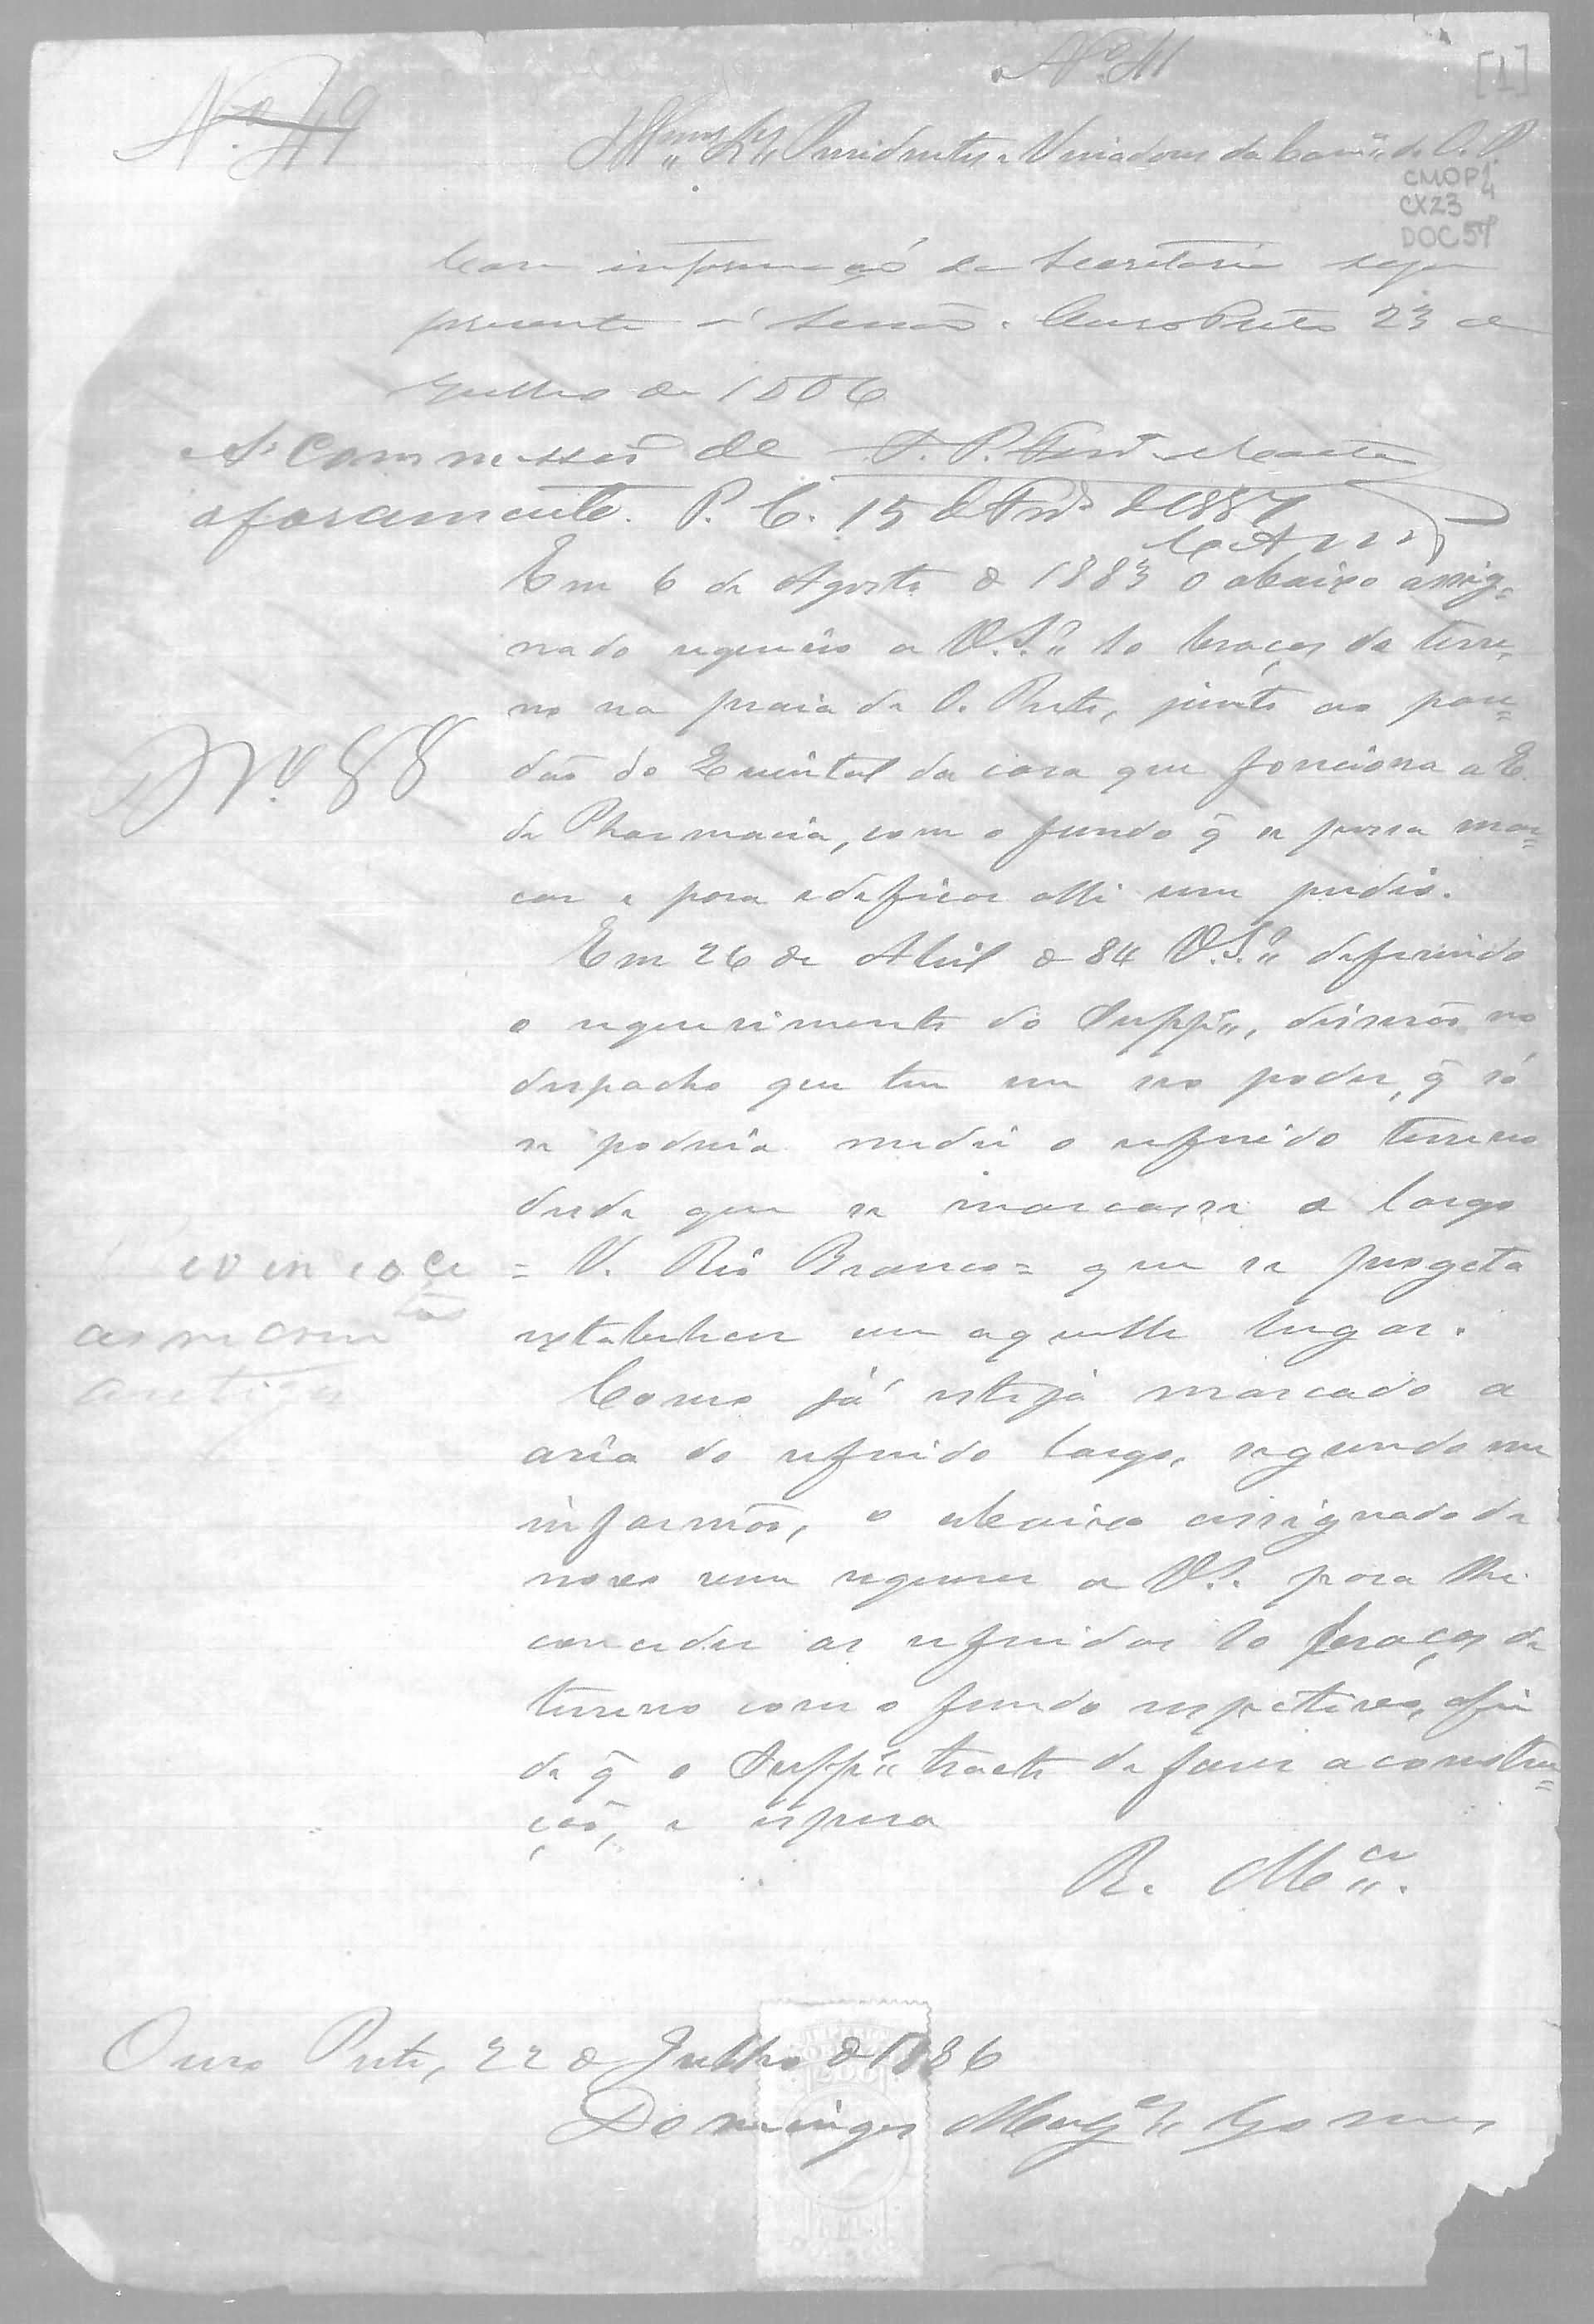 Nº 41
[1]
Nº 49
Illmos Srs Presidente e Veriadores da Camª de O. P.
CMOP 1/4
CX23
DOC 57
Com informação da Secretaria seja
presente á sessão. Ouro Preto 23 de
Julho de 1886
A' Commissão de
aforamento. P. C. 15 de 1887
Em 6 de Agosto de 1883 o abaixo assig=
nado requereu a V.S.ª 10 braças de terre=
no na praia de O. Preto, junto ao pare=
dão do Quintal da casa que fonciona a E.
de Pharmacia, com o fundo q̃ se possa mar=
car e para edeficar alli um predio.
Em 26 de Abril de 84 V.S.ª deferindo
o requerimento do Suppe, disserão no
despacho que tem em seo poder, q̃ só
se poderia medir o referido terreno
desde que se marcasse o largo
= V. Rio Branco = que se progeta
estabelecer em aquelle lugar.
Como já esteja marcado a
aria do referido largo, segundo me
informão, o abaixo assignado de
novo vem requerer a V.S. para lhe
conceder as referidas 10 braças de
terreno com o fundo respectivo, afim
de q̃ o Suppe tracte de fazer a constru=
ção, e espera
R. Mce.
Nº 88
Ouro Preto, 22 de Julho de 1886
Domingos Magês Gomes